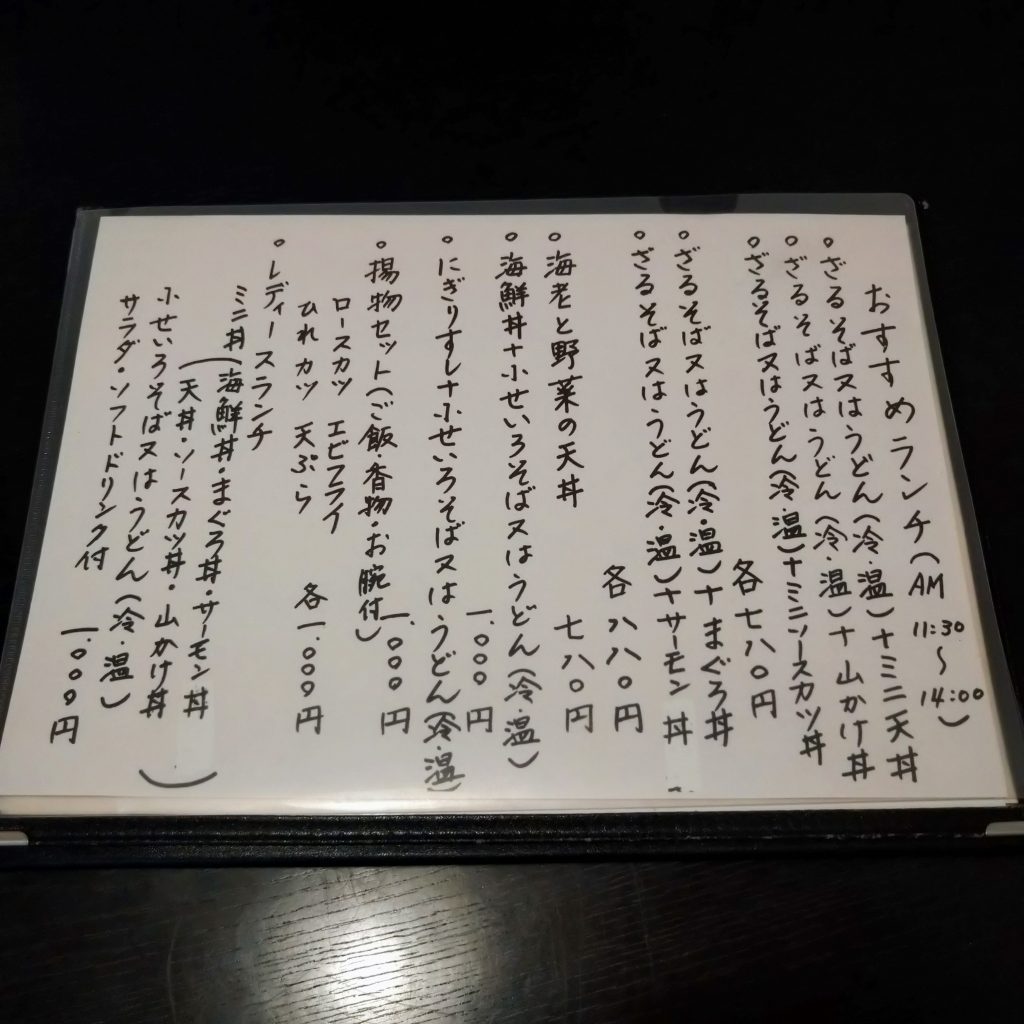 おすすめランチ(AM 11:30〜14:00)
○ざるそば又はうどん(冷・温)+ミニ天丼
○ざるそば又はうどん(冷・温)+山かけ丼
○ざるそば又はうどん(冷・温)+ミニソースカツ丼
各七八〇円
○ざるそば又はうどん(冷・温)+まぐろ丼
○ざるそば又はうどん(冷・温)+サーモン丼
各八八〇円
○海老と野菜の天丼
七八〇円
○海鮮丼+小せいろそば又はうどん(冷・温)
一.〇〇〇円
○にぎりすし+小せいろそば又はうどん(冷・温)
一.〇〇〇円
○揚物セット(ご飯・香物・お腕付)
ロースカツ エビフライ
ひれカツ 天ぷら
各一.〇〇〇円
○レディースランチ
ミニ丼(海鮮丼・まぐろ丼・サーモン丼
(天丼・ソースカツ丼・山かけ丼)
小せいろそば又はうどん(冷・温)
サラダ・ソフトドリンク付
一.〇〇〇円